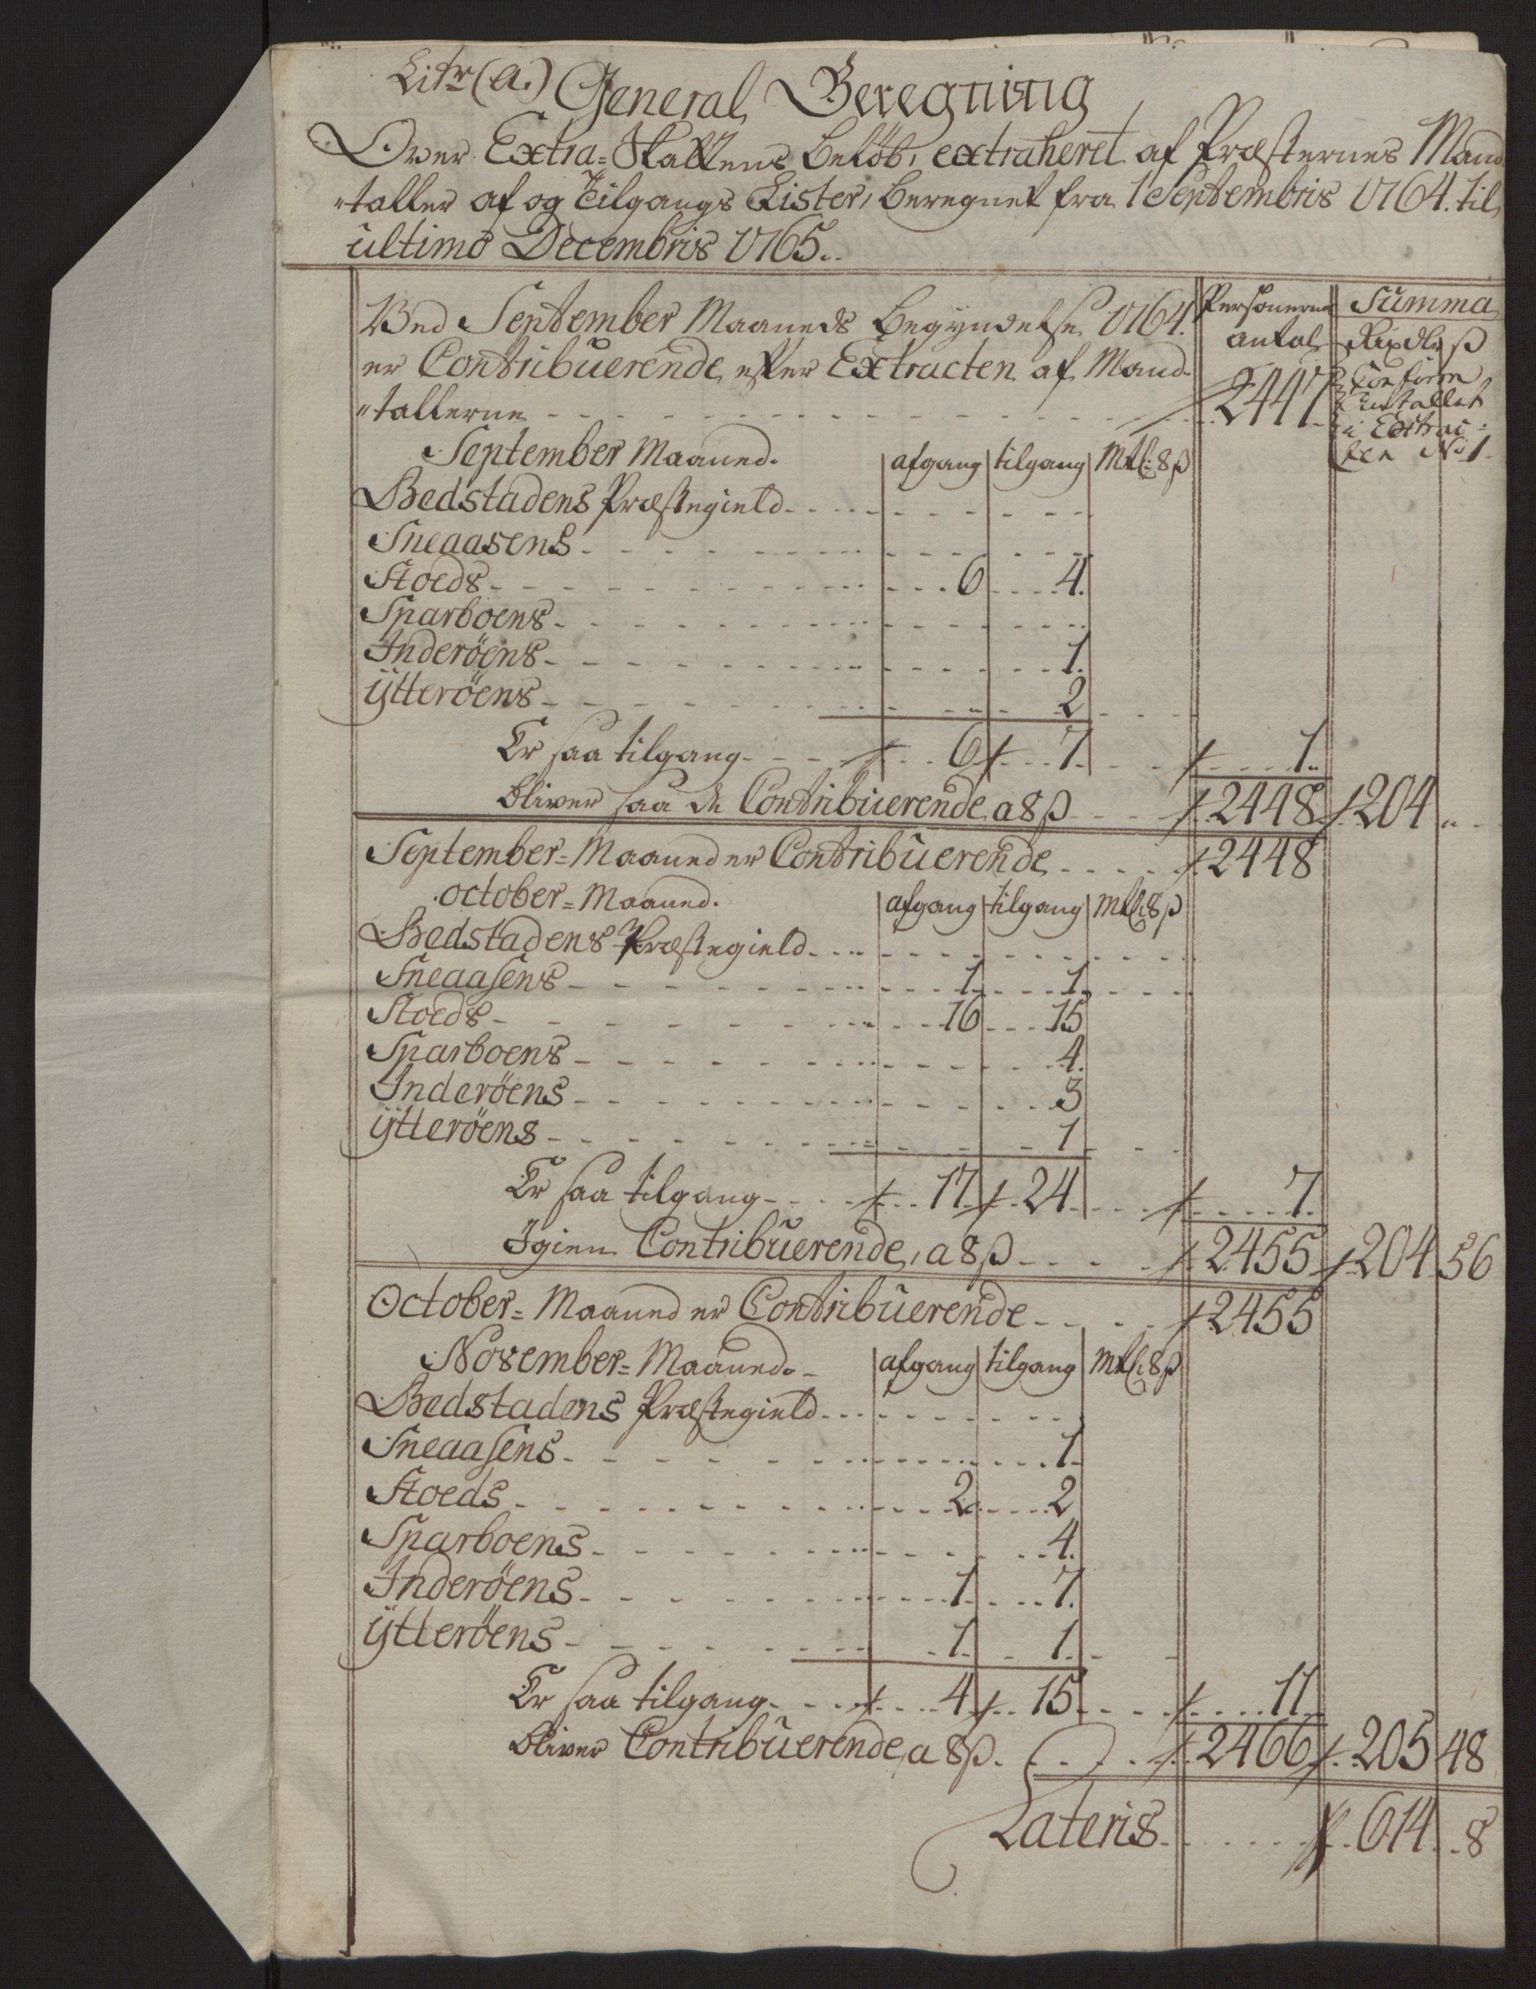 Litr (a.) General Beregning
Over Extra-Skattens Beløb, extraheret af Præsternes Mand
"taller af og Tilgangs Lister, beregnet fra 1 Septembris 1764. til
ultimo Decembris 1765.
Ved September Maaneds Begyndelse 1764. Personernes Summa
er Contribuerende, efter Extracten af Mand- antal Rixdlr ß
"tallerne 2447 Conform
Antallet
i Extrac-
ten No 1.
September Maaned. afgang tilgang Mk: 8 ß
Bedstadens Præstegield
Sneaasens
Stoeds 6 4.
Sparboens
Inderöens 1.
ÿtteröens 2
Er saa tilgang 6 7. 1.
bliver saa de Contribuerende a 8 ß 2448 204 "
September-Maaned er Contribuerende 2448
october-Maaned. afgang tilgang Mk: 8 ß
Bedstadens Præstegield
Sneaasens 1. 1.
Stoeds 16 15
Sparboens 4.
Inderöens 3
ÿtteröens 1
Er saa tilgang 17 24 7.
Igien Contribuerende, a 8 ß 2455 204 56
October-Maaned er Contribuerende 2455
November-Maaned. afgang tilgang Mk: 8 ß
Bedstadens Præstegield
Sneaasens 1.
Stoeds 2 2
Sparboens 4.
Inderöens 1 7.
ÿtteröens 1. 1.
Er saa tilgang 4 15 11
bliver Contribuerende, a 8 ß 2466 205 48
Lateris 614 8